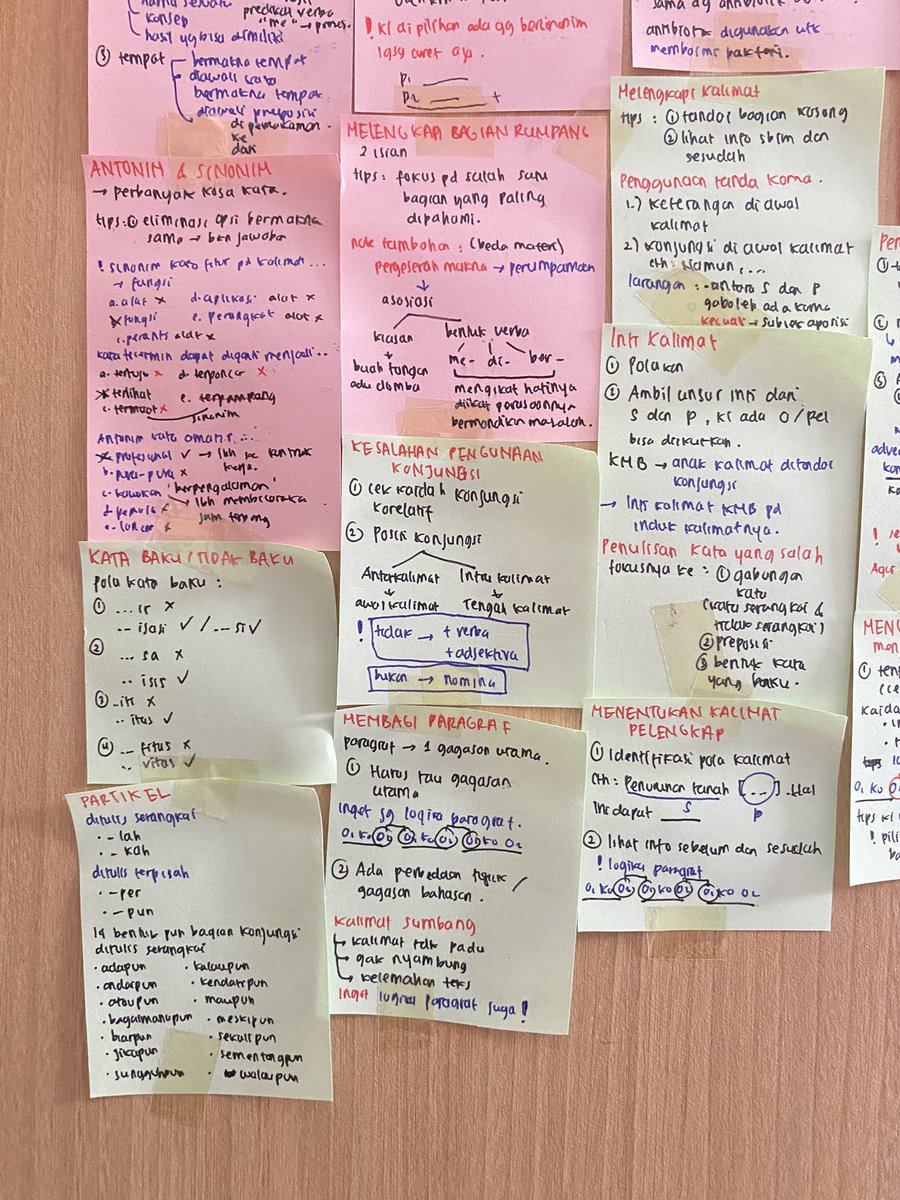 konsep
predikat verba
"me" → proses
hasil yg bisa dimiliki
③ tempat
bermakna tempat
diawali kata
bermakna tempat
diawali preposisi
di pemakaman
ke
dari
! Kl di pilihan ada yg bersinonim
lgsg coret aja
P1
P2 +
sama dg antibiotik
antibiotik digunakan utk
membasmi bakteri.
ANTONIM & SINONIM
→ perbanyak kosa kata.
tips: ① eliminasi opsi bermakna
sama → bkn jawaban
! sinonim kata fitur pd kalimat ...
→ fungsi
a. alat x d. aplikasi alat x
fungsi e. perangkat alat x
c. peranti alat x
kata tercermin dapat diganti menjadi..
a. tertuju x d. terpancar x
terlihat e. terpampang
c. termuat x sinonim
Antonim kata amatir ...
profesional ✓ → lbh ke kontrak
b. pura-pura x kerja.
c. kawakan "berpengalaman"
d. pemula x → lbh membicarakan
e. luncur x jam terbang
MELENGKAPI BAGIAN RUMPANG
2 isian
tips: fokus pd salah satu
bagian yang paling
dipahami.
note tambahan: (beda materi)
pergeseran makna → perumpamaan
asosiasi
kiasan bentuk verba
me- di- ber-
buah tangan
adu domba
mengikat hatinya
diikat perusoonnya
bermandikan masalah.
Melengkapi Kalimat
tips: ① tandai bagian kosong
② lihat info sblm dan
sesudah
Penggunaan tanda koma.
1.) Keterangan di awal
kalimat
2) Konjungsi di awal kalimat
cth: Namun, ...
larangan: - antara S dan P
gaboleh ada koma
kecuali → subjek aposisi
Inti Kalimat
① Polakan
② Ambil unsur inti dari
S dan P, kl ada O/Pel
bisa diikutkan.
KMB → anak kalimat ditandai
konjungsi
→ Inti kalimat KMB pd
induk kalimatnya.
Penulisan kata yang salah
fokusnya ke: ① gabungan
kata
(kata serangkai &
tidak serangkai)
② preposisi
③ bentuk kata
yang baku.
KESALAHAN PENGUNAAN
KONJUNGSI
① cek kaidah konjungsi
korelatif
② Posisi konjungsi
Antarkalimat Intrakalimat
awal kalimat Tengah kalimat
! tidak → + verba
+ adjektiva
bukan → nomina
KATA BAKU / TIDAK BAKU
pola kata baku:
① ... ir x
... isasi ✓ / ... si ✓
②
... sa x
... isis ✓
③ ...
.. itas ✓
④ ... fitas x
.. vitas ✓
MEMBAGI PARAGRAF
paragraf → 1 gagasan utama.
① Harus tau gagasan
utama
Inget sg logika paragraf.
O1 KO O2 O1 KO O2 O1 KO O2
② Ada perbedaan topik /
gagasan bahasan.
kalimat sumbang
kalimat tdk padu
gak nyambung
kelemahan teks
Inget logika paragraf juga!
MENENTUKAN KALIMAT
PELENGKAP
① Identifikasi pola kalimat
cth: Penurunan tanah [...]. Hal
ini dapat S P
② lihat info sebelum dan sesudah
! logika paragraf
O1 KO O2 O1 KO O2 O1 KO O2
PARTIKEL
ditulis serangkai
• - lah
• - kah
ditulis terpisah
• - per
• - pun
14 bentuk pun bagian konjungsi
ditulis serangkai
• adapun • kalaupun
• andaipun • kendatipun
• ataupun • maupun
• bagaimanapun • meskipun
• biarpun • sekalipun
• jikapun • sementangpun
• sungguhpun • walaupun